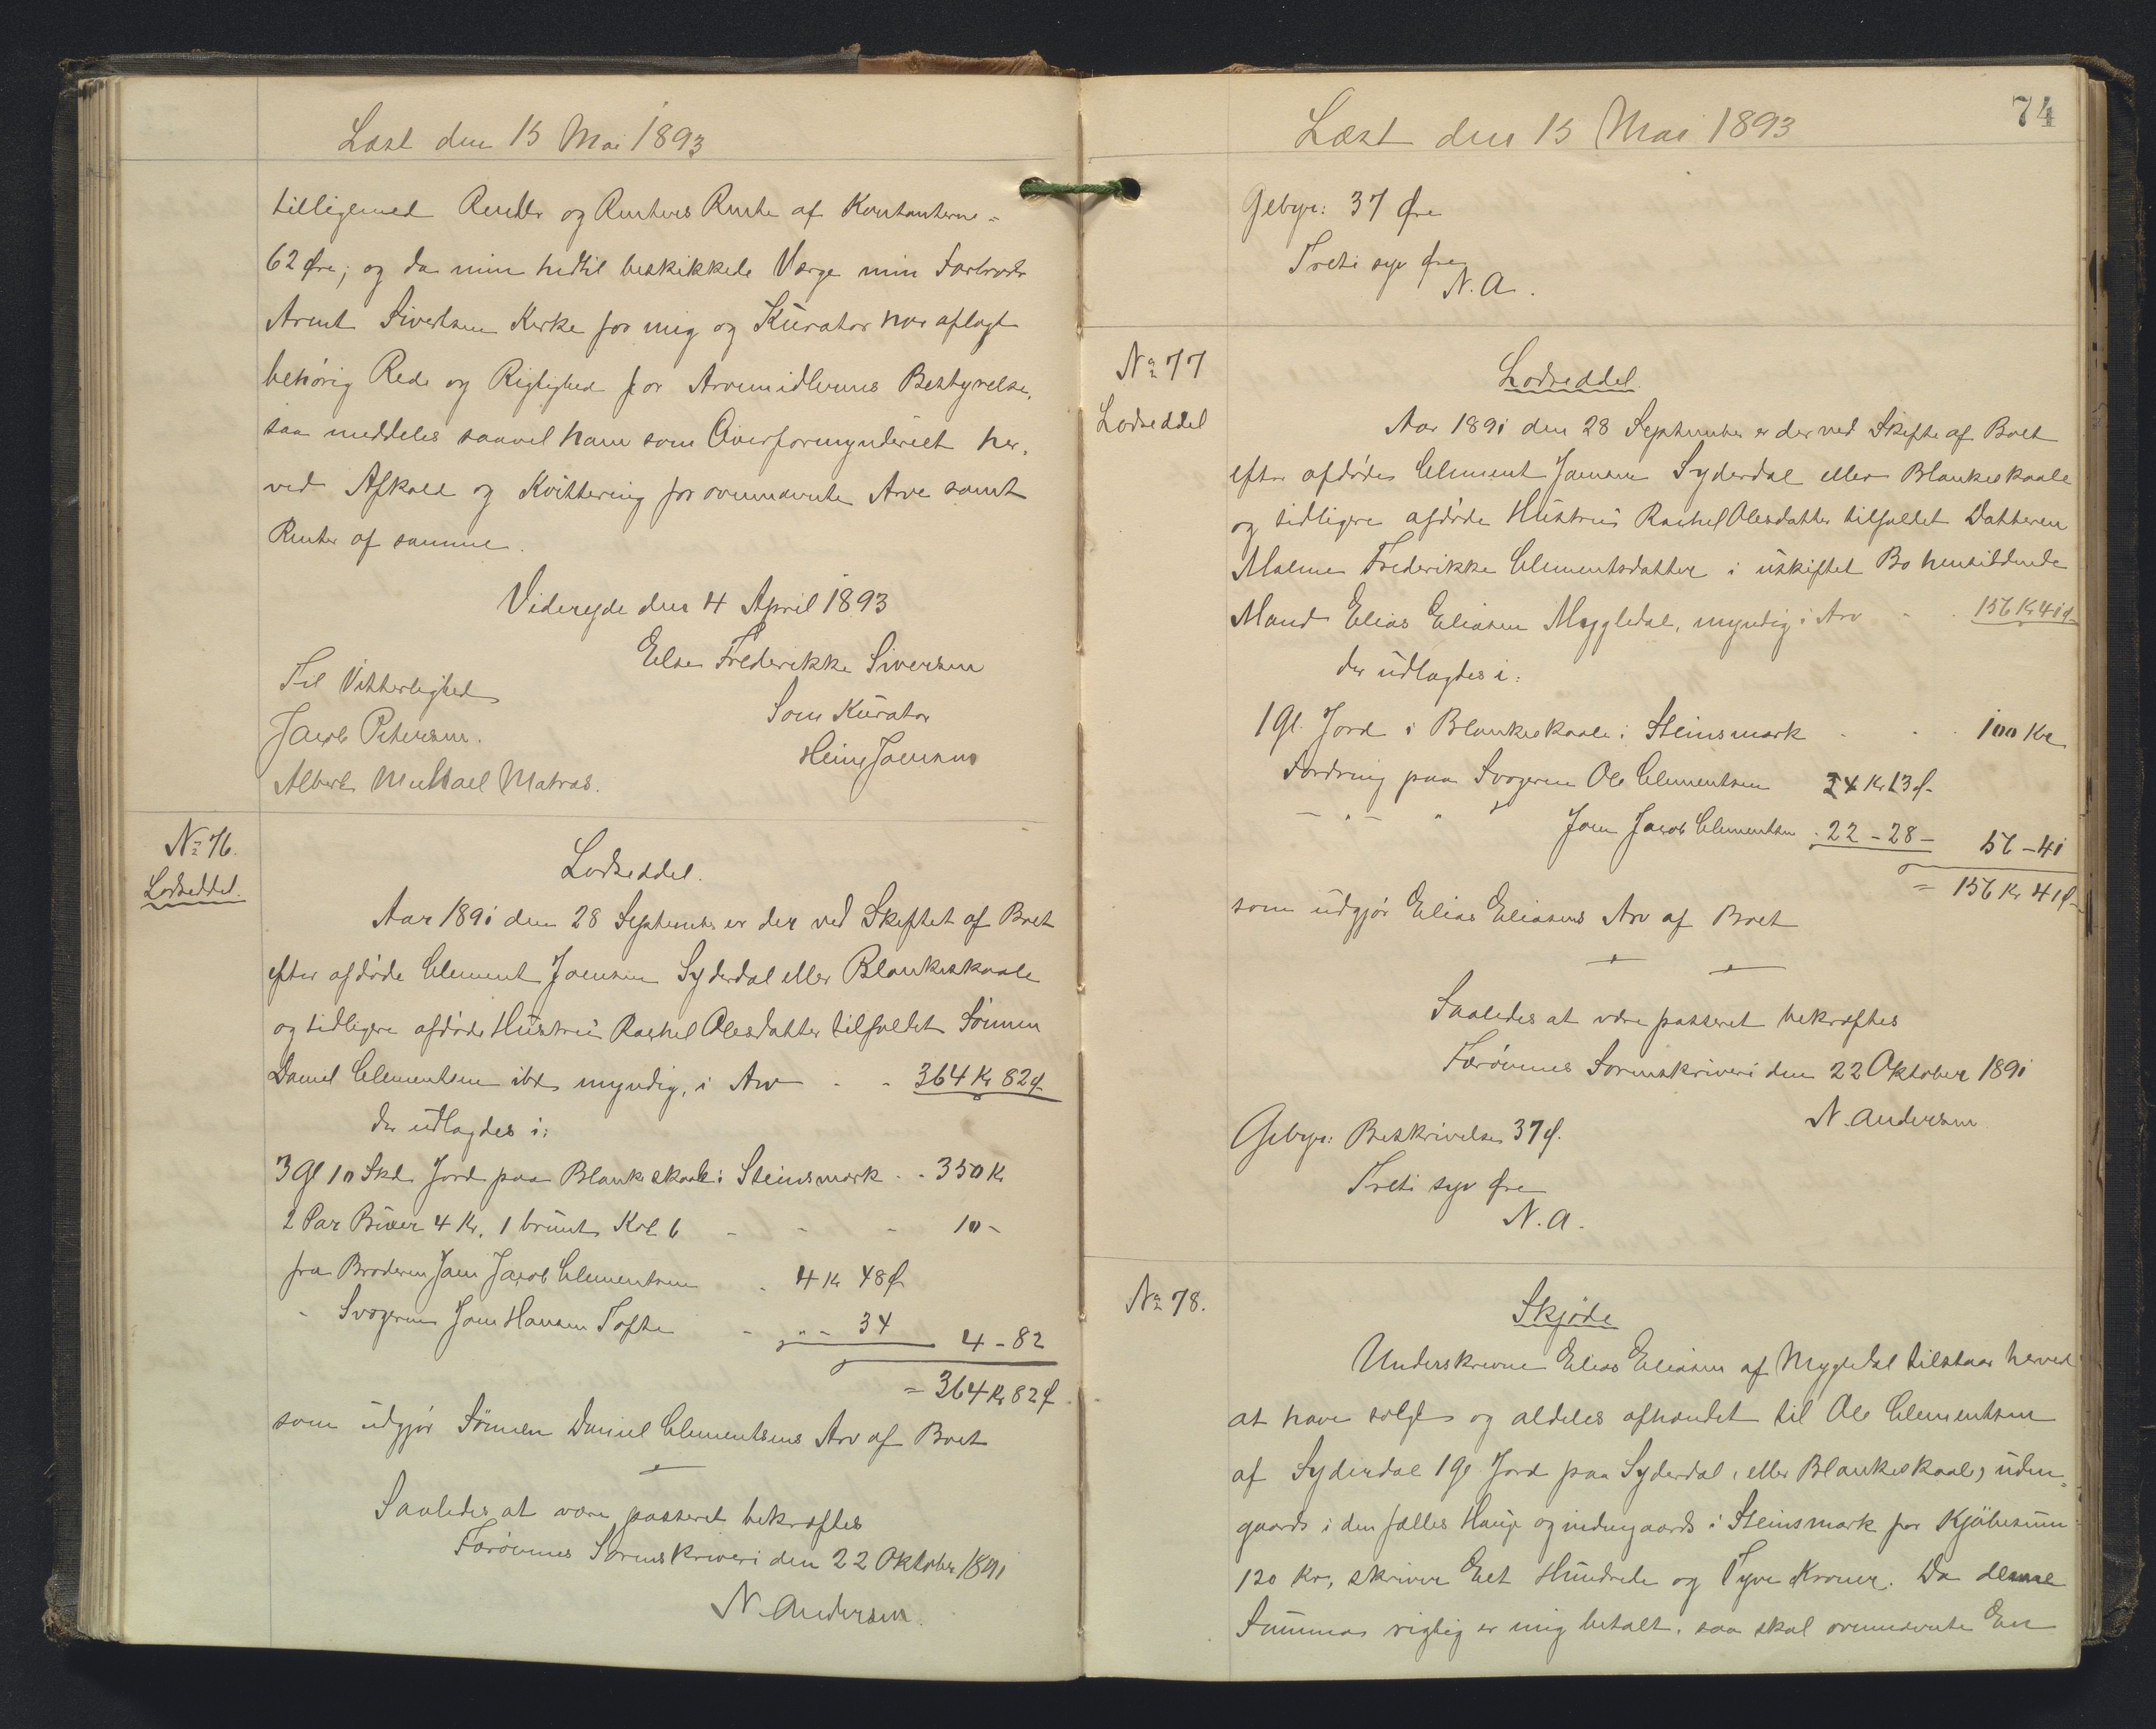 Læst den 15 Mai 1893
tilligemed Renter og Renters Rente af Kontanterne =
62 Øre; og da min hidtil beskikkede Værge min Farbroder
Arent Sivertsen Kirke for mig og Kurator har aflagt
behörig Rede og Rigtighed for Arvemidlernes Bestyrelse,
saa meddeles saavel ham som Overformynderiet her-
ved Afkald og Kvittering for ovennævnte Arve samt
Renter af samme.
Videreyde den 4 April 1893
Else Frederikke Siversen
Til Vitterlighed
Som Kurator
Jacob Petersen.
Heine Joensen
Albert Michael Matras.
No 76.
Lodseddel.
Lodseddel.
Aar 1891 den 28 September er der ved Skiftet af Boet
efter afdöde Clement Joensen Syderdal eller Blankeskaale
og tidligere afdöde Hustru Rachel Olesdatter tilfaldet Sönnen
Daniel Clementsen ibd. myndig, i Arv - - 364 Kr 82 Ø
der udlagdes i:
3 Gl 10 Skd Jord paa Blankeskaale i Steinsmark - - 350 Kr
2 Par Buxer 4 Kr, 1 brunt Kol 6 - - - 10 -
fra Broderen Joen Jacob Clementsen - 4 Kr 48 Ø
- Svogeren Joen Hansen Tofte - - " - 34 4 - 82
= 364 Kr 82 Ø
som udgjör Sönnen Daniel Clementsens Arv af Boet
Saaledes at være passeret bekræftes
Færöernes Sorenskriveri den 22 Oktober 1891
N. Andersen.
74
Læst den 15 Mai 1893
Gebyr: 37 Øre
Treti syv Øre
N. A.
No 77
Lodseddel
Lodseddel.
Aar 1891 den 28 September er der ved Skifte af Boet
efter afdödes Clement Joensen Syderdal eller Blankeskaale
og tidligere afdöde Hustru Rachel Olesdatter tilfaldet Datteren
Malene Frederikke Clementsdatter i uskiftet Bo hensiddende
Mand Elias Eliasen Mygledal, myndig i Arv - - 156 Kr 41 Ø
der udlagdes i:
1 Gl. Jord i Blankeskaale i Steinsmark - - - 100 Kr
Fordring paa Svogeren Ole Clementsen 34 Kr 13 Ø -
- " - " " Joen Jacob Clementsen - 22 - 28 - 56 - 41
= 156 Kr 41 Ø
som udgjör Elias Eliasens Arv af Boet
Saaledes at være passeret bekræftes
Færöernes Sorenskriveri den 22 Oktober 1891
N. Andersen
Gebyr: Beskrivelse 37 Ø.
Treti syv Øre
N. A.
No 78.
Skjöde
Underskrevne Elias Eliasen af Mygledal tilstaar herved
at have solgt og aldeles afhændet til Ole Clementsen
af Syderdal 1 Gl Jord paa Syderdal, eller Blankeskaale, uden-
gaards i den fælles Hauge og indengaards i Steinsmark for Kjöbesum
120 Kr, skriver Eet Hundrede og Tyve Kroner. Da denne
Summa rigtig er mig betalt, saa skal ovennævnte Een